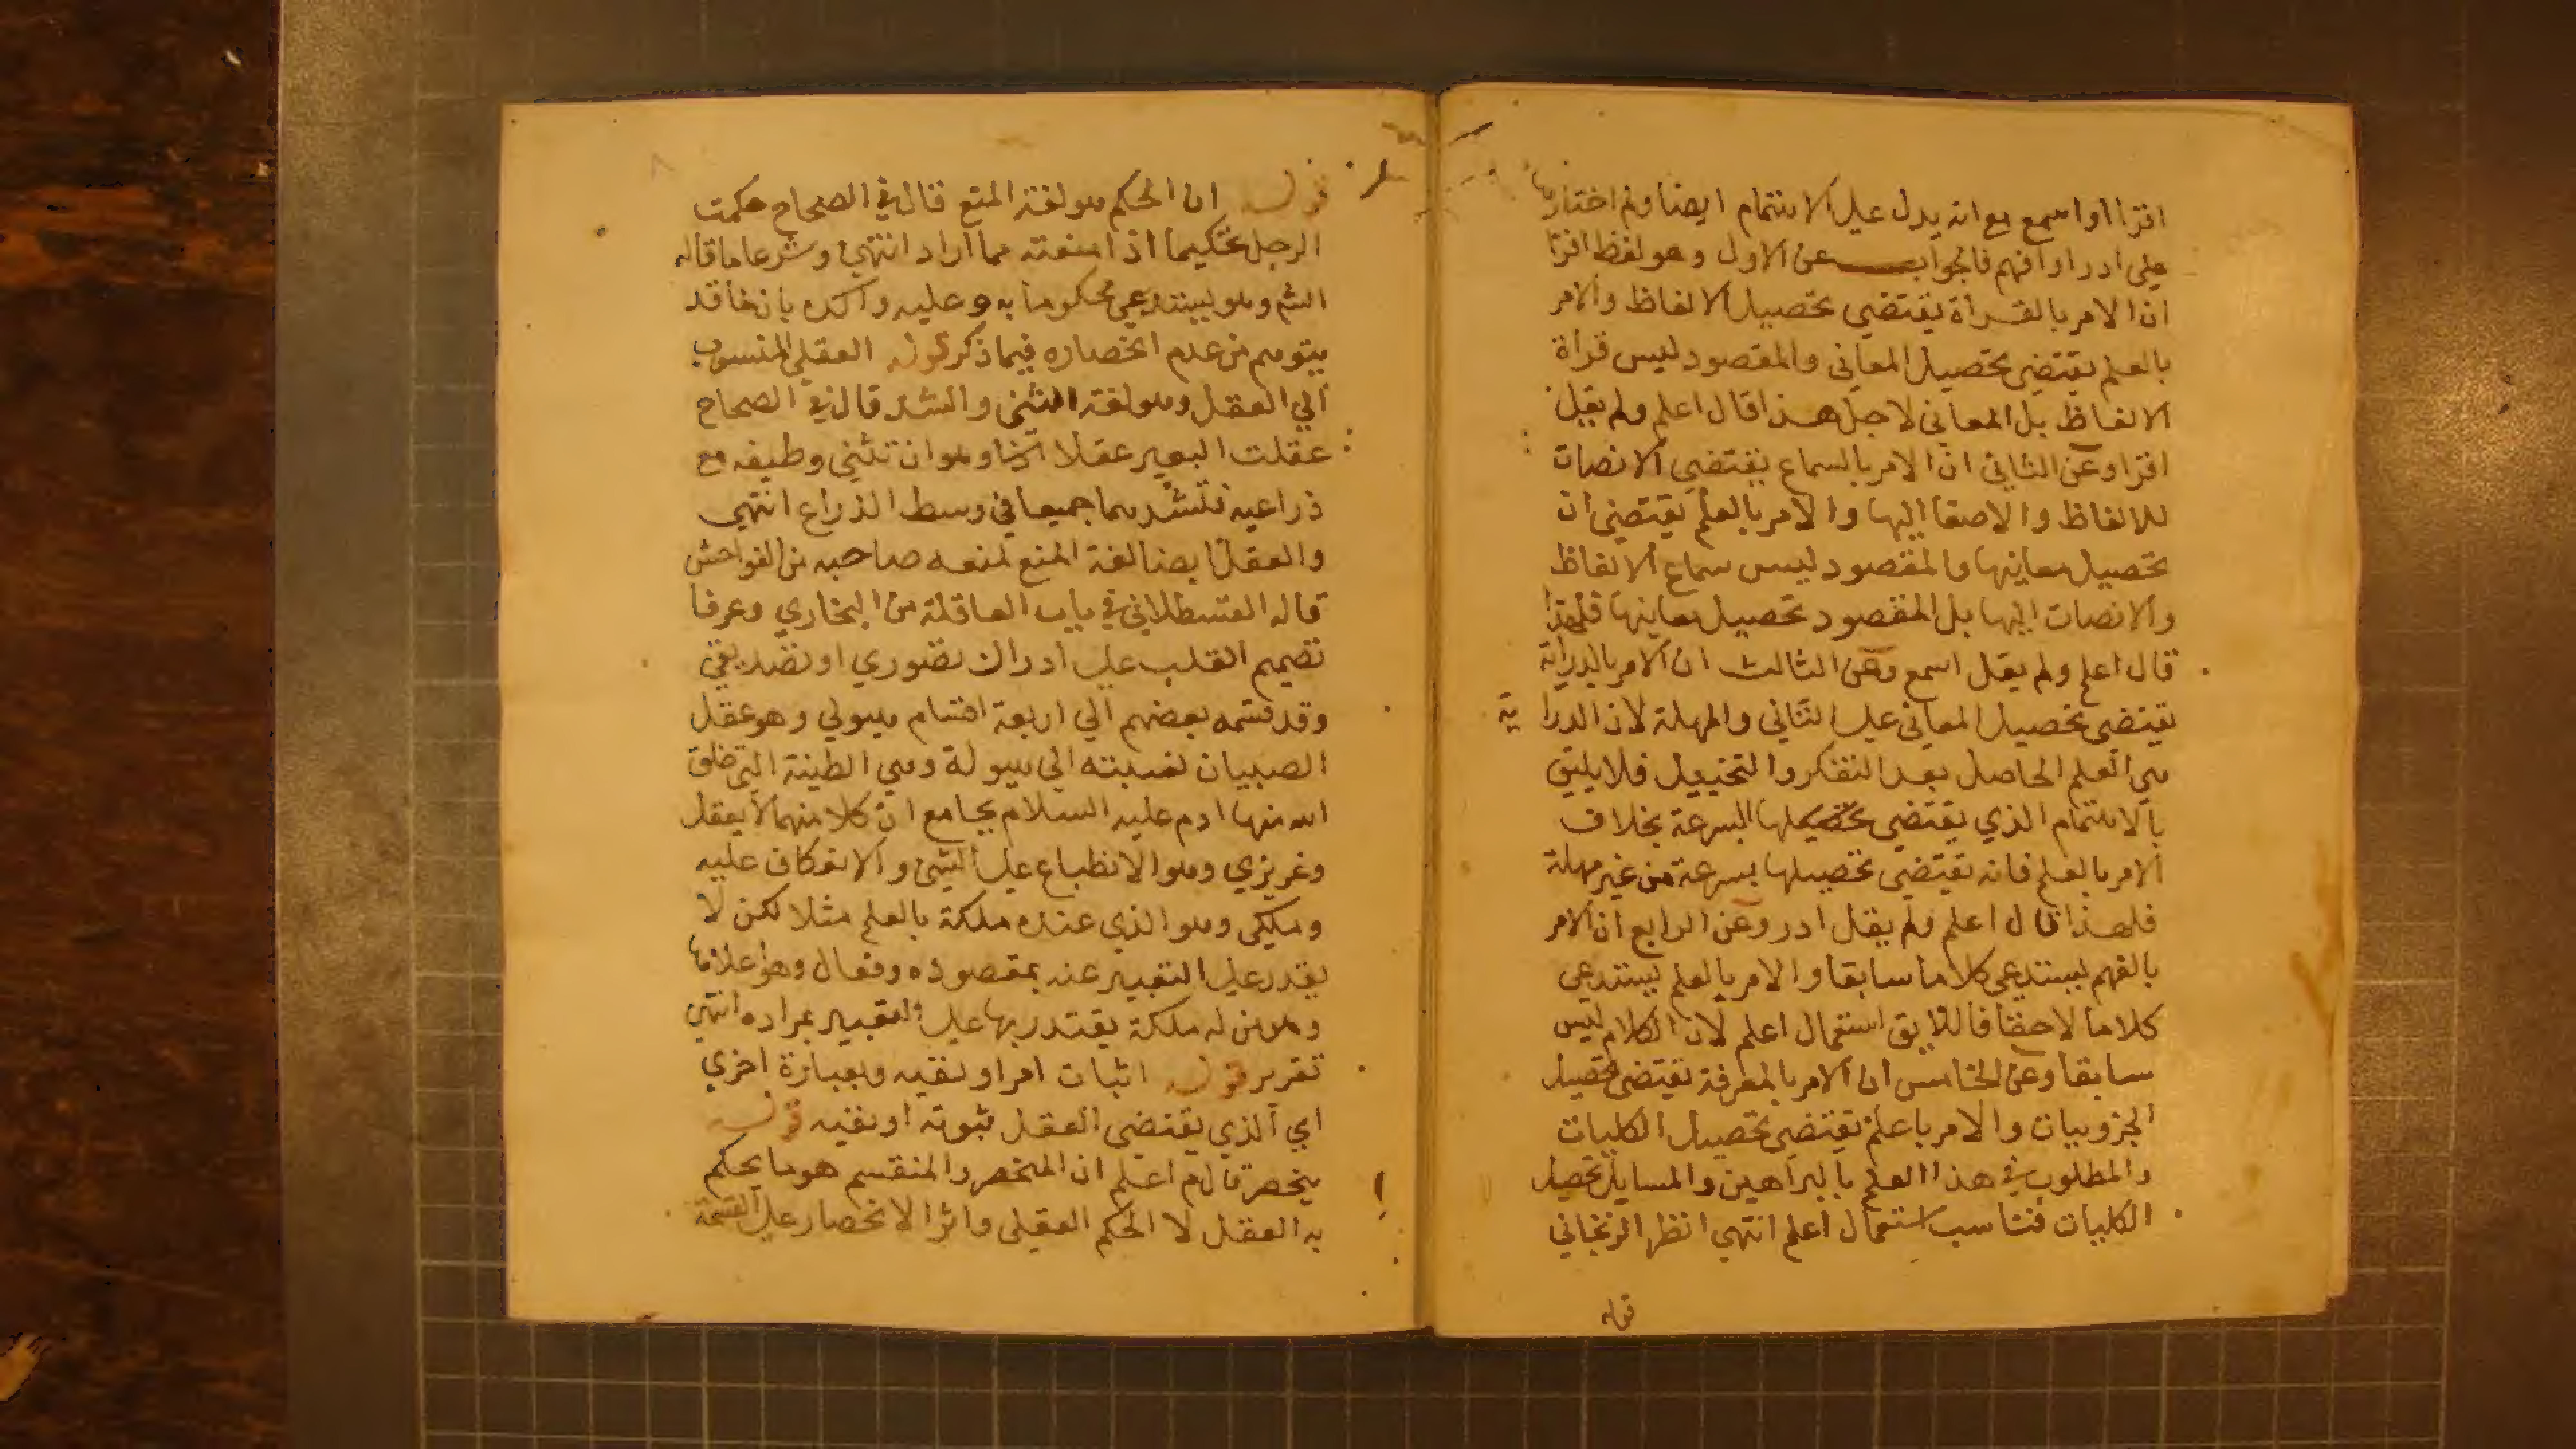 اقرا او اسمع مع انه يدل علي الاهتمام ايضا ولم اختارها
علي ادر او افهم فالجواب عن الاول وهو لفظ اقرا
ان الامر بالقراة يقتضي تحصيل الالفاظ والامر
بالعلم يقتضي تحصيل المعاني والمقصود ليس قراة
الالفاظ بل المعاني لاجل هذا قال اعلم ولم يقل
اقرا وعن الثاني ان الامر بالسماع يقتضي الانصات
للالفاظ والاصغا اليها والامر بالعلم يقتضي ان
تحصيل معاينها والمقصود ليس سماع الالفاظ
والانصات اليها بل المقصود تحصيل معاينها فلهذا
قال اعلم ولم يقل اسمع وعن الثالث ان الامر بالدراية
يقتضي تحصيل المعاني علي التاني والمهلة لان الدراية
هي العلم الحاصل بعد التفكر والتخييل فلا يليق
بالاهتمام الذي يقتضي تحصيلها البسرعة بخلاف
الامر بالعلم فانه يقتضي تحصيلها بسرعة من غير مهلة
فلهذا قال اعلم ولم يقل ادر وعن الرابع ان الامر
بالفهم يستدعي كلاما سابقا والامر بالعلم يستدعي
كلاما لاحقا فاللايق استعمال اعلم لان الكلام ليس
سابقا وعن الخامس ان الامر بالمعرفة يقتضي تحصيل
الجزويات والامر باعلم يقتضي تحصيل الكليات
والمطلوب في هذا العلم بالبراهين والمسايل تحصيل
الكليات فناسب استعمال اعلم انتهي انظر الزنخاني
قوله
قوله ان الحكم هو لغة المنع قال في الصحاح حكمت
الرجل تحكيما اذا منعته مما اراد انتهي وشرعا ما قاله
الش وهو يستدعي محكوما به وعليه واكده بان دفعا قد
يتوهم من عدم انحصاره فيما ذكر قوله العقلي المنسوب
الي العقل وهو لغة الثني والشد قال في الصحاح
عقلت البعير عقلا وهو ان تثني وظيفه مع
ذراعيه فتشدهما جميعا في وسط الذراع انتهي
والعقل ايضا لغة المنع لمنعه صاحبه من الفواحش
قاله القسطلاني في باب العاقلة من البخاري وعرفا
تصميم القلب علي ادراك تصوري او تصديقي
وقد قسمه بعضهم الي اربعة اقسام هيولي وهو عقل
الصبيان لنسبته الي هيولة وهي الطينة التي خلق
الله منها ادم عليه السلام بجامع ان كلا منهما لا يعقل
وغريزي وهو الانطباع علي الشي والانعكاف عليه
وملكي وهو الذي عنده ملكة بالعلم مثلا لكن لا
يقدر علي التعبير عنه بمقصوده وفعال وهو اعلاها
وهو من له ملكة يقتدر بها علي التعبير بمراده انتهي
تقرير قوله اثبات امر او نفيه وبعبارة اخري
اي الذي يقتضي العقل ثبوته او نفيه قوله
ينحصر قال م اعلم ان المنحصر والمنقسم هو ما يحكم
به العقل لا الحكم العقلي واثر الانحصار علي القسمة